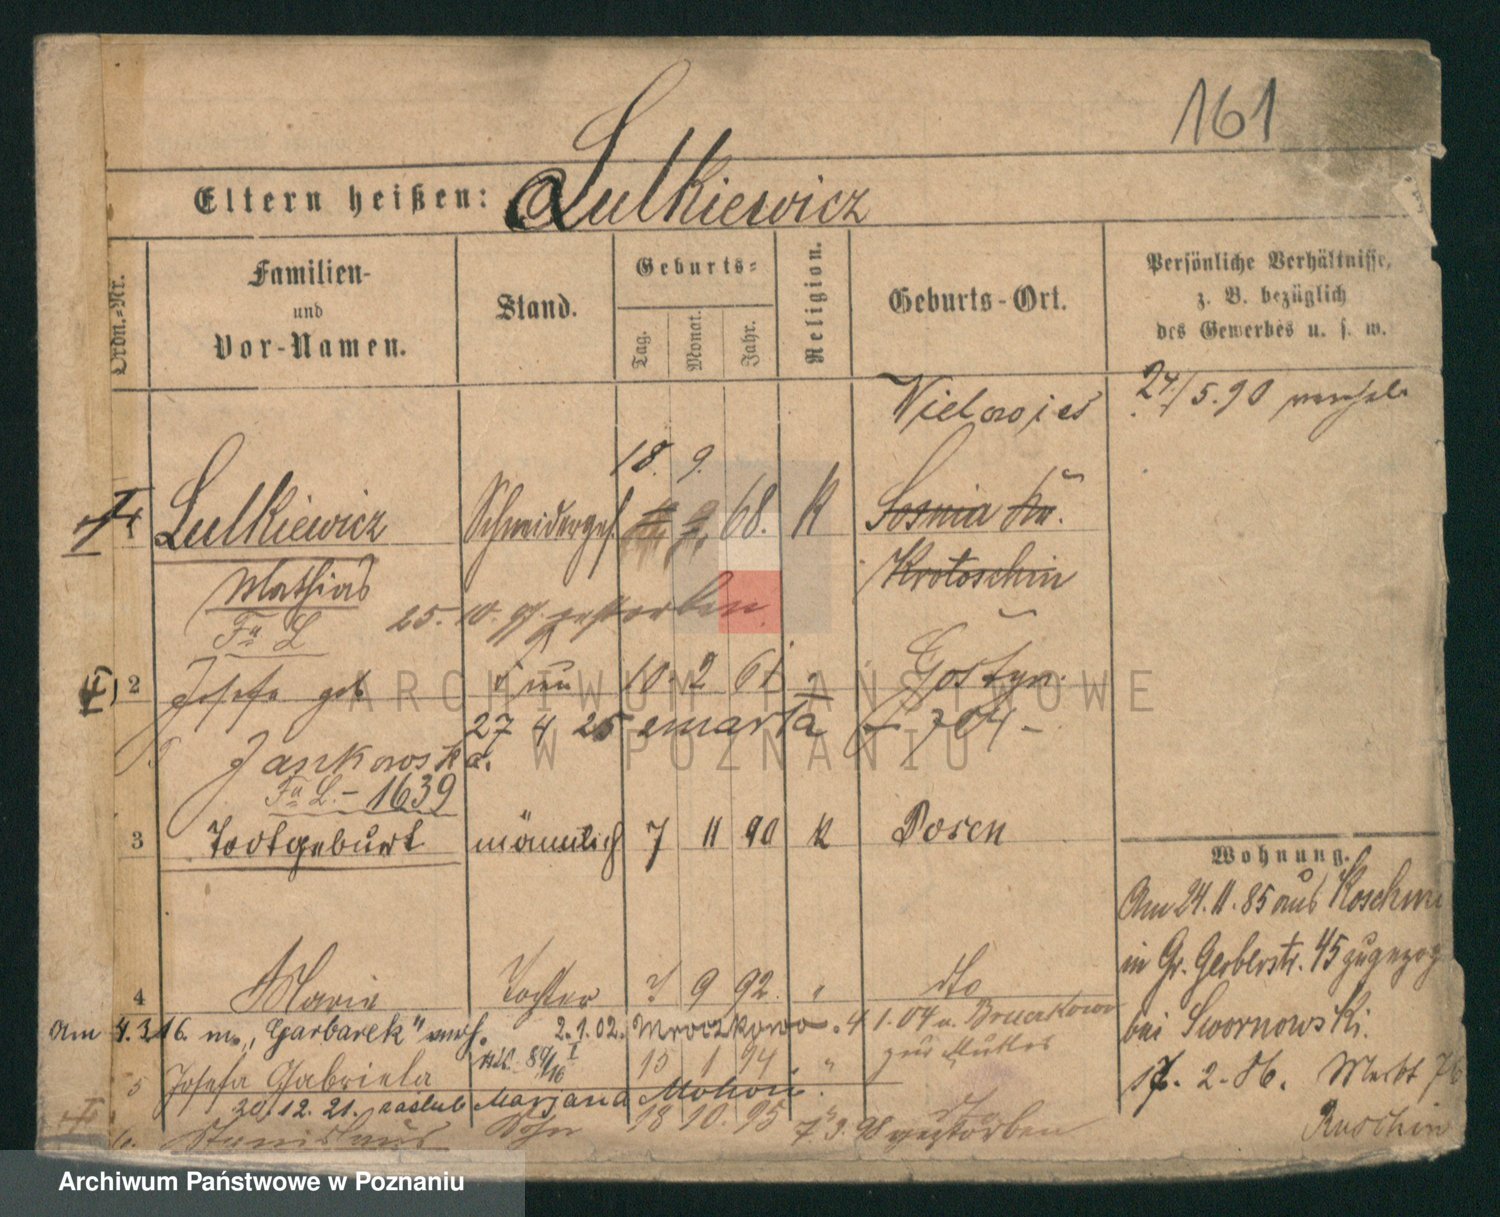 161
Eltern heißen: Lulkiewicz
Ordn.-Nr.
Familien- und Vor-Namen.
Stand.
Geburts-
Tag. Monat. Jahr.
Religion.
Geburts-Ort.
Persönliche Verhältnisse, z. B. bezüglich des Gewerbes u. s. w.
Wielowies 27/5.90
18. 9.
1 Lulkiewicz Schneiderges. 68. K Sosnia Kr.
Mathias Krotoschin
Fa L 25. 10. 97 gestorben.
2 Josefa geb 10. 2 61 " Gostyn.
27 4 25 zmarła
Jankowska.
Fa L. - 1639
3 Todtgeburt männlich 7 11 90 K Posen
Wohnung.
Am 24. 11. 85 aus Koschmi
in Gr. Gerberstr. 45 zugezog
bei Swornowski.
17. 2. 86. Markt 76
Ruschin
4 Maria Tochter 9 92 " dto
Am 4.3.16. m. "Garbarek" verh. 2.1.02. Mroczkowo. 4.1.04 u. Bruczkowo
zur Mutter
5 Josefa Gabriela 15 1 94 "
30.12.21. zaślub Marjana Mohou
6. Stanislaus Sohn 18 10. 95 7.3.98 gestorben
ARCHIWUM PAŃSTWOWE
W POZNANIU
Archiwum Państwowe w Poznaniu